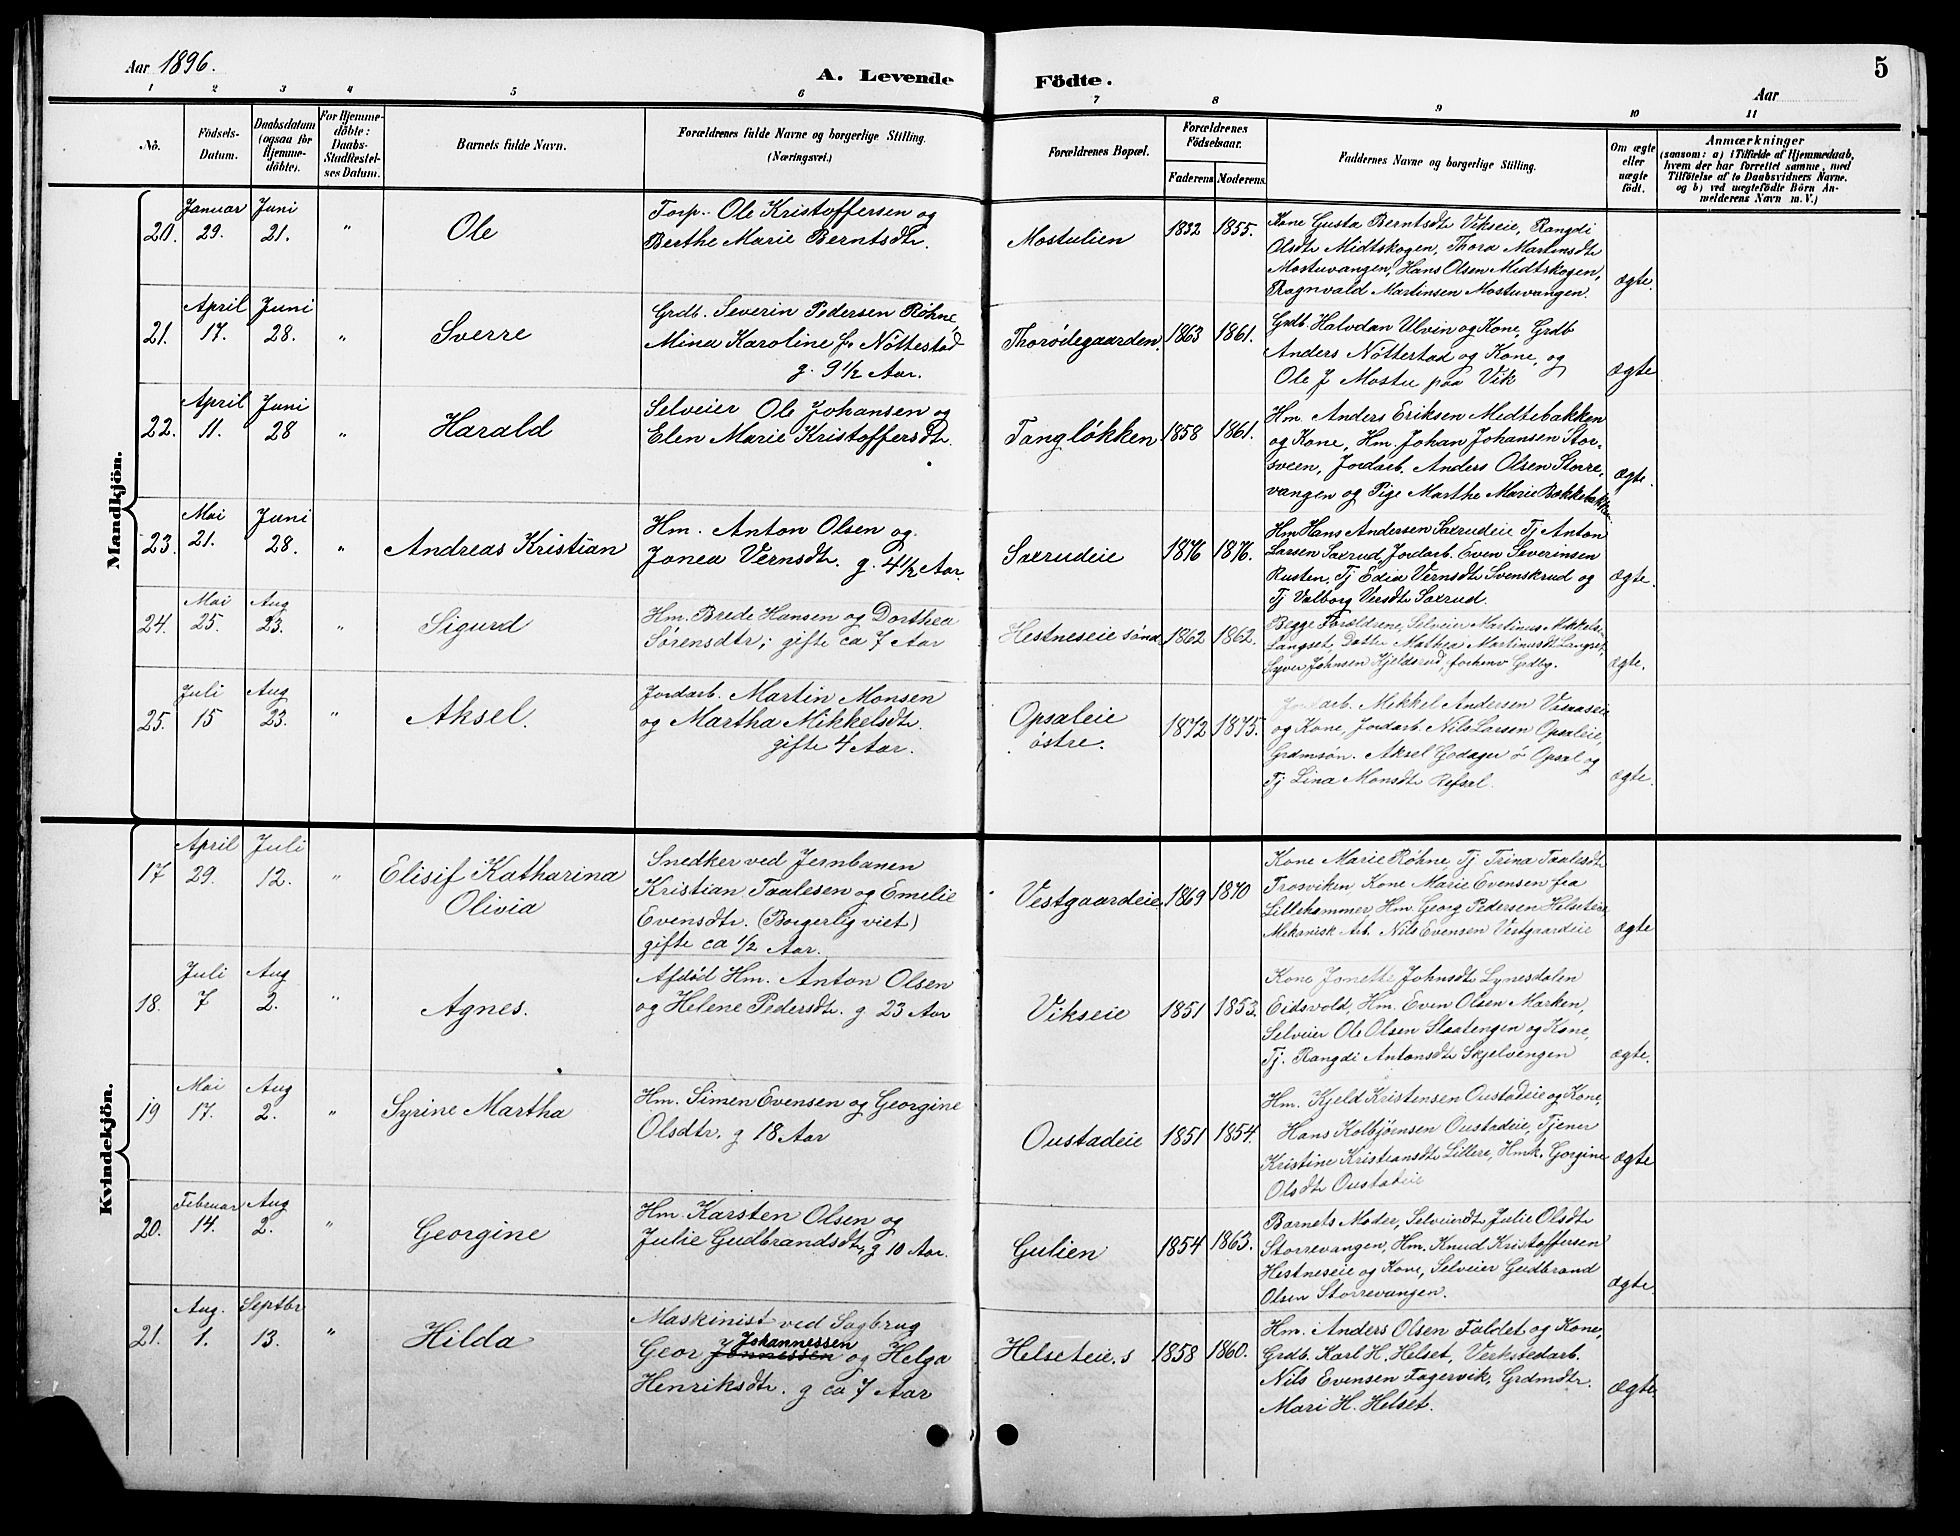 Aar 1896.
A. Levende Fødte.
5
Aar
1 2 3 4 5 6 7 8 9 10 11
No.
Födsels-Datum.
Daabsdatum (ogsaa for Hjemmedöbte).
For Hjemmedöbte: Daabs-Stadfæstelses Datum.
Barnets fulde Navn.
Forældrenes fulde Navne og borgerlige Stilling.
(Næringsvei.)
Forældrenes Bopæl.
Forældrenes Födselsaar.
Faderens. Moderens.
Faddernes Navne og borgerlige Stilling.
Om ægte eller uægte födt.
Anmærkninger
(saasom: a) i Tilfælde af Hjemmedaab,
hvem der har forrettet samme, med
Tilföielse af to Daabsvidners Navne.
og b) ved uægtefödte Börn An-
melderens Navn m. V.)
Mandkjön.
20. Januar 29. Juni 21. " Ole
Torp. Ole Kristoffersen og
Berthe Marie Berntsdtr.
Mostulien 1832 1855.
Kone Gusta Berntsdtr Vikseie, Rangdi
Olsdtr Midtskogen, Thora Martinsdtr
Mostuvangen, Hans Olsen Midtskogen,
Ragnvald Martinsen Mostuvangen.
ægte.
21. April 17. Juni 28. " Sverre
Grdb. Severin Pedersen Röhne,
Mina Karoline f. Nöttestad
g. 9 1/2 Aar.
Thorödegaarden. 1863 1861.
Grdb. Halvdan Ulvin og Kone, Grdb
Anders Nöttestad og Kone, og
Ole J Mostu paa Vik
ægte
22. April 11. Juni 28 " Harald
Selveier Ole Johansen og
Elen Marie Kristoffersdtr.
Tanglökken 1858 1861.
Hm. Anders Eriksen Midtebakken
og Kone, Hm. Johan Johansen Stor-
sveen, Jordarb. Anders Olsen Storre-
vangen og Pige Marthe Marie Bakkebakken
ægte.
23. Mai 21. Juni 28. " Andreas Kristian
Hm. Anton Olsen og
Jonea Vernsdtr. g. 4 1/2 Aar.
Saxrudeie 1876 1876.
Hm Hans Andersen Saxrudeie Tj Anton
Larsen Saxrud, Jordarb. Even Severinsen
Rusten, Tj Edia Vernsdtr Svenskrud og
Tj Valborg Versdtr Saxrud.
ægte.
24. Mai 25. Aug 23. " Sigurd
Hm. Brede Hansen og Dorthea
Sörensdtr; gifte ca 7 Aar
Hestneseie sönd 1862 1862.
Begge Forældrene, Selveier Martinus Mikkels-
Langset, Datter Mathea Martinusdt Langset,
Syver Johnsen Kjeldsrud, forhenv Grdbg.
ægte.
25. Juli 15 Aug 23. " Aksel.
Jordarb. Martin Monsen
og Martha Mikkelsdtr.
gifte 4 Aar.
Opsaleie
östre. 1872 1875.
Jordarb. Mikkel Andersen
og Kone, Jordarb. Nils Larsen Opsaleie,
Grdmsön. Aksel Godager ö Opsal og
Tj Lina Monsdtr Refsal.
ægte.
Kvindekjön.
17 April 29. Juli 12. " Elisif Katharina
Olivia
Snedker ved Jernbanen
Kristian Taalesen og Emelie
Evensdtr. (Borgerlig viet)
gifte ca 1/2 Aar.
Vestgaardeie 1869 1870
Kone Marie Röhne, Tj. Trina Taalesdtr
Trosviken Kone Marie Evensen fra
Lillehammer, Hm. Georg Pedersen Helseteie
Mekanisk Arb. Nils Evensen Vestgaardeie
ægte
18. Juli 7 Aug 2. " Agnes.
Afdöd Hm. Anton Olsen
og Helene Pedersdtr. g 23 Aar
Vikseie 1851 1853.
Kone Jonette Johnsdtr Lynesdalen
Eidsvold, Hm. Even Olsen Marken,
Selveier Ole Olsen Slaatengen og Kone,
Tj. Rangdi Antonsdtr Skjelvengen
ægte.
19 Mai 17. Aug 2. " Syrine Martha
Hm. Simen Evensen og Georgine
Olsdtr. g 18 Aar
Oustadeie 1851 1854.
Hm. Kjeld Kristensen Oustadeie og Kone,
Hans Kolbjörnsen Oustadeie, Tjener
Kristine Kristiansdtr Lillere, Hmk. Gorgine
Olsdtr Oustadeie
ægte
20. Februar 14. Aug 2. " Georgine
Hm. Karsten Olsen og
Julie Gudbrandsdtr, g 10 Aar.
Gulien 1854 1863.
Barnets Moder, Selveierdtr Julie Olsdtr
Storrevangen, Hm. Knud Kristoffersen
Hestneseie og Kone, Selveier Gudbrand
Olsen Storrevangen.
ægte.
21. Aug. 1. Septbr 13. " Hilda
Maskinist ved Sagbrug
Geor Johannessen og Helga
Henriksdtr. g ca 7 Aar
Helseteie. s 1858 1860.
Hm. Anders Olsen Faldet og Kone,
Grdb. Karl H. Helset, Verkstedarb.
Nils Evensen Fagervik, Grdmdtr.
Mari H. Helset.
ægte.